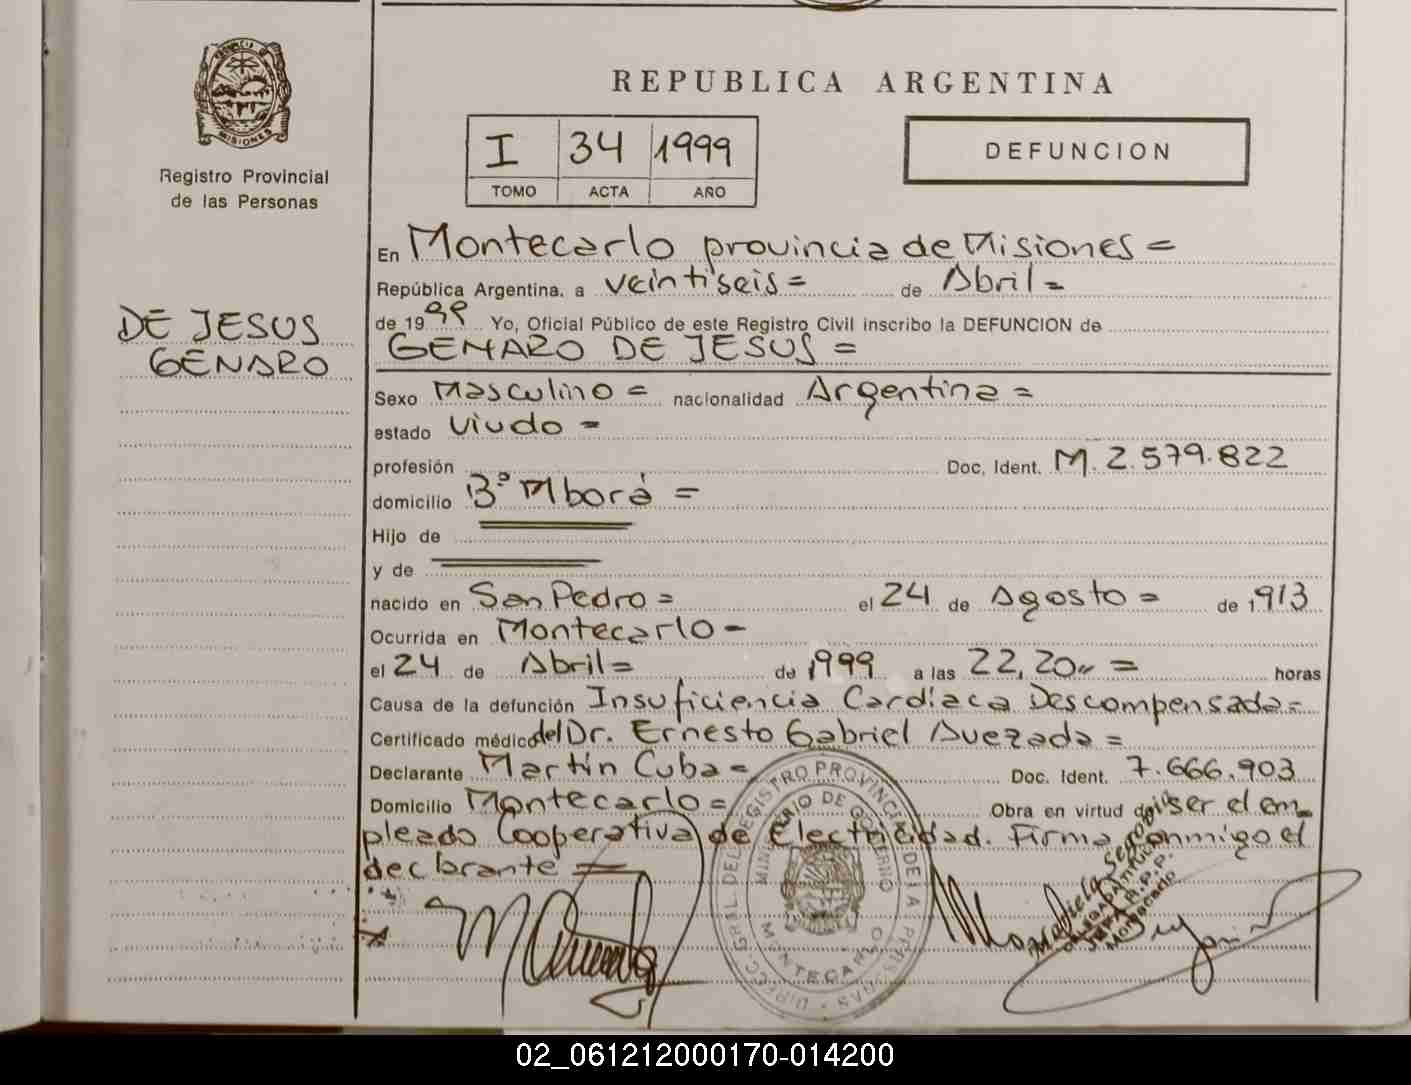 MISIONES
Registro Provincial
de las Personas
DE JESUS
GENARO
REPUBLICA ARGENTINA
I 34 1999
TOMO ACTA AÑO
DEFUNCION
En Montecarlo provincia de Misiones =
República Argentina, a veintiseis = de Abril =
de 1999 Yo, Oficial Público de este Registro Civil inscribo la DEFUNCION de
GENARO DE JESUS =
Sexo Masculino = nacionalidad Argentina =
estado Viudo =
profesión Doc. Ident. M. 2.579.822
domicilio B° Mborá =
Hijo de
y de
nacido en San Pedro = el 24 de Agosto = de 1913
Ocurrida en Montecarlo =
el 24 de Abril = de 1999 a las 22,20 = horas
Causa de la defunción Insuficiencia Cardíaca Descompensada =
Certificado médico del Dr. Ernesto Gabriel Quezada =
Declarante Martín Cuba = Doc. Ident. 7.666.903
Domicilio Montecarlo = Obra en virtud de ser el em
pleado Cooperativa de Electricidad. Firma conmigo el
declarante =
DIREC. GRAL. DEL REGISTRO PROVINCIAL DE LA PERSONAS
MINISTERIO DE GOBIERNO
MONTECARLO
02_061212000170-014200